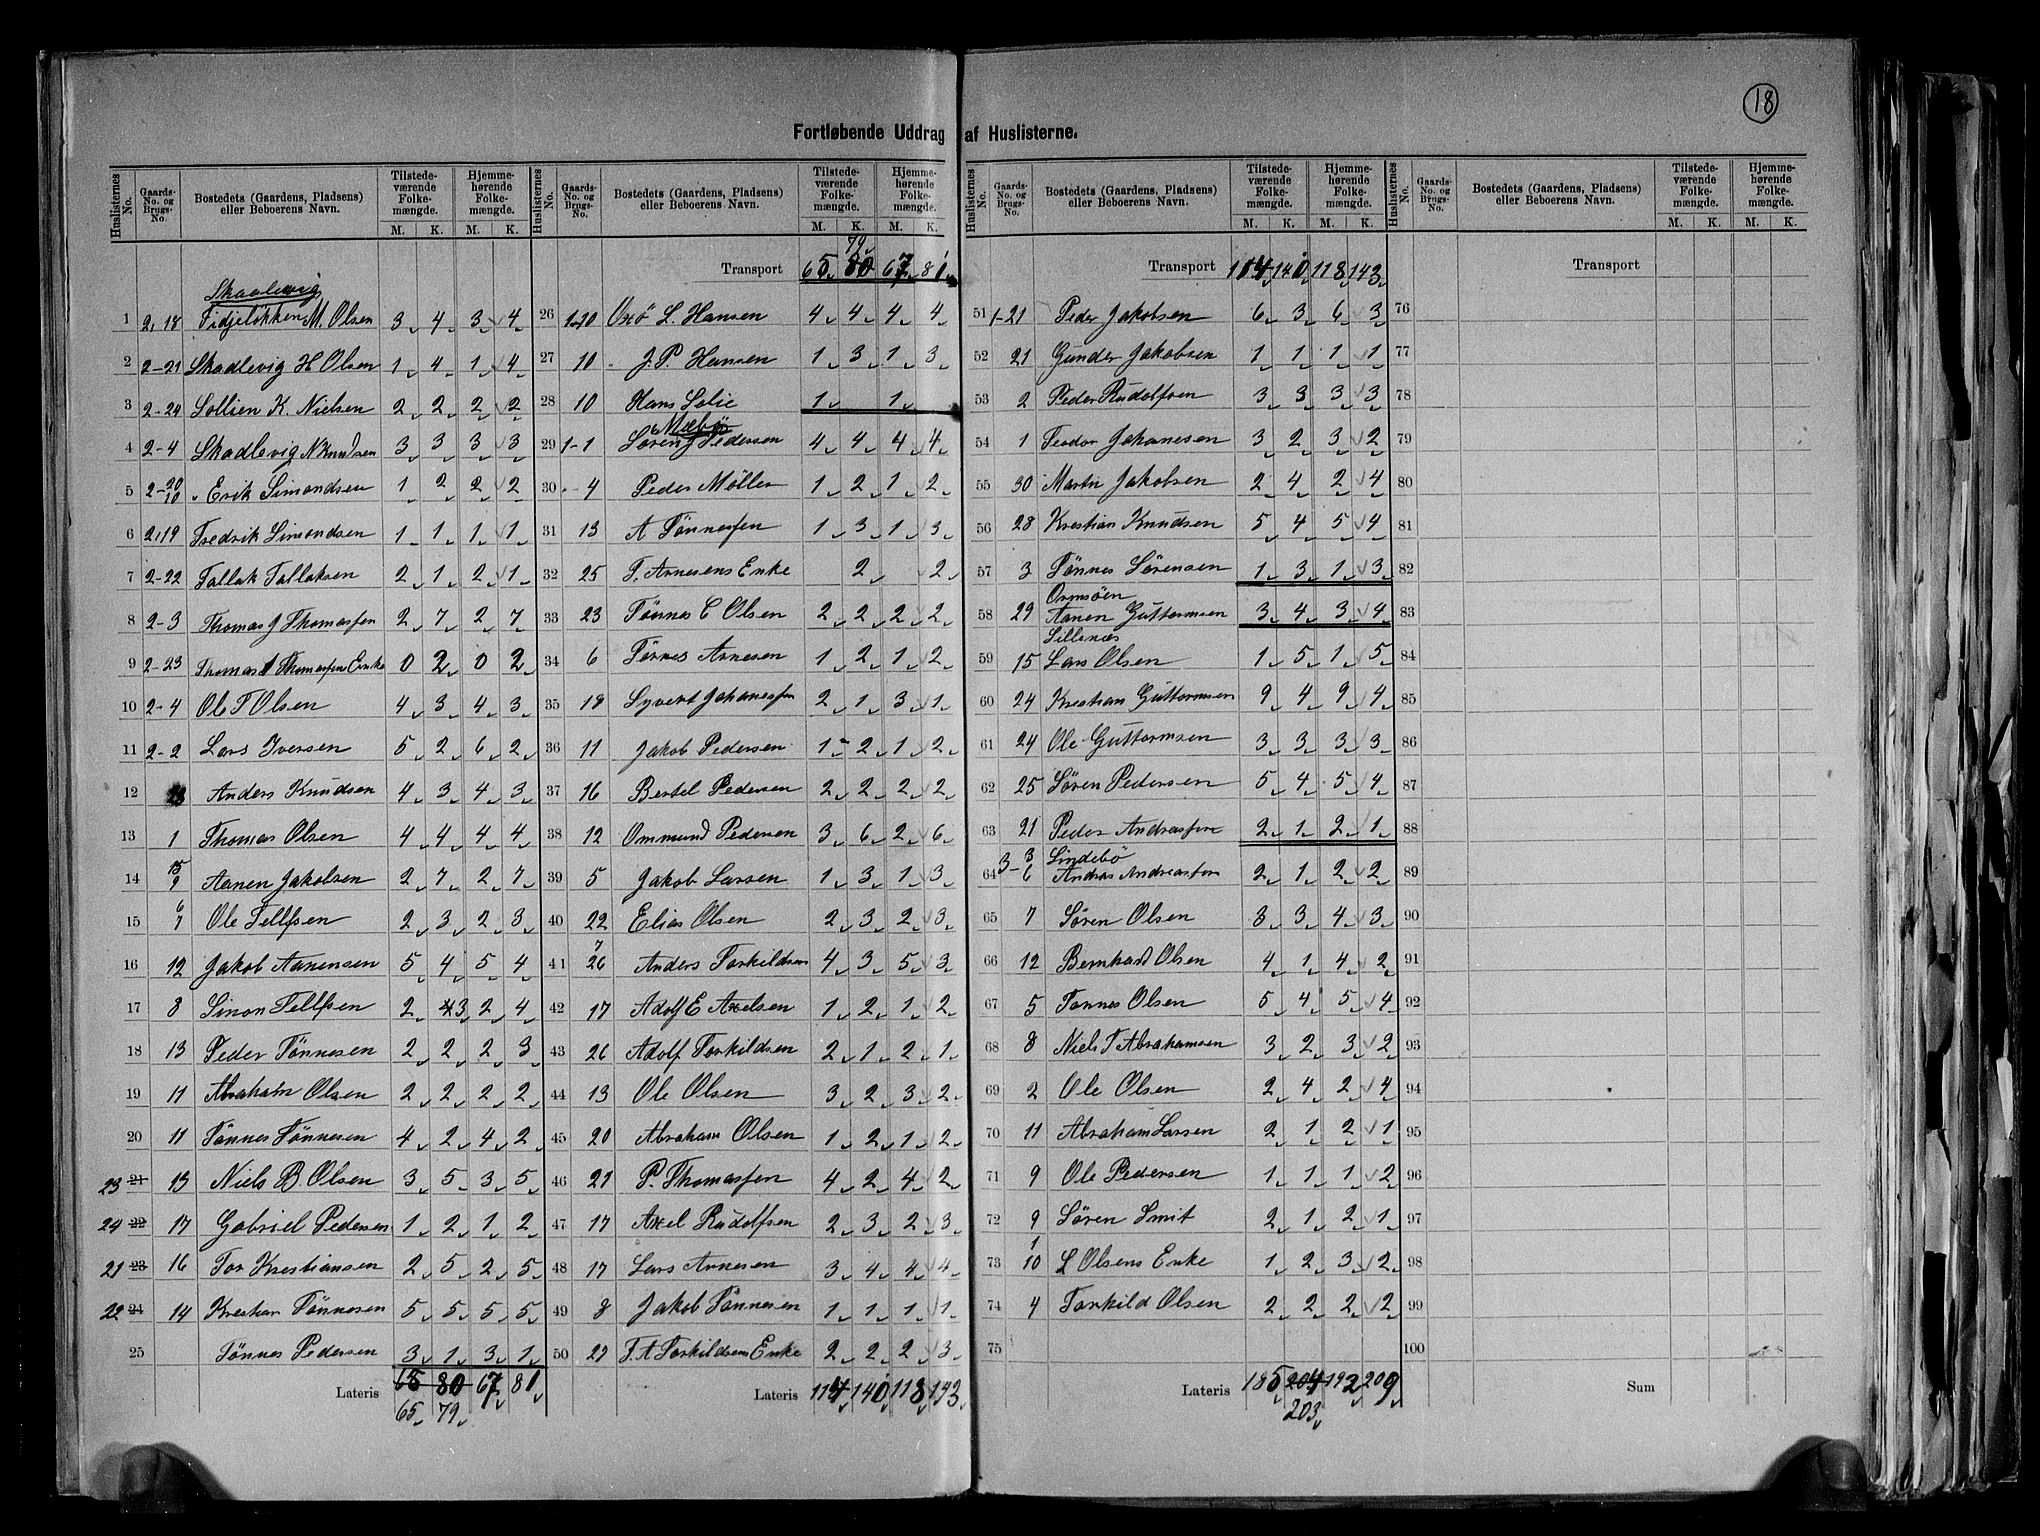 18
Fortløbende Uddrag af Huslisternes.
Huslisternes No. Gaards-No. og Brugs-No. Bostedets (Gaardens, Pladsens) eller Beboerens Navn. Tilstedeværende Folkemængde. M. K. Hjemmehørende Folkemængde. M. K.
Skaalevig
1 2, 18 Fidjeløkken M. Olsen 3 4 3 4
2 2-21 Skadlevig H Olsen 1 4 1 4
3 2-24 Sollien K. Nielsen 2 2 2 2
4 2-4 Skadlevig N Knudsen 3 3 3 3
5 2-20 10 " Erik Simondsen 1 2 2 2
6 2, 19 Fredrik Simondsen 1 1 1 1
7 2-22 Tallak Tallaksen 2 1 2 1
8 2-3 Thomas J Thomassen 2 7 2 7
9 2-23 Thomas Thomassens Enke 0 2 0 2
10 2-4 Ole T Olsen 4 3 4 3
11 2-2 Lars Iversen 5 2 6 2
12 Anders Knudsen 4 3 4 3
13 1 Thomas Olsen 4 4 4 4
14 15 9 Aanen Jakobsen 2 7 2 7
15 6 7 Ole Tellfsen 2 3 2 3
16 12 Jakob Aanensen 5 4 5 4
17 8 Simon Tellfsen 2 4 3 2 4
18 13 Peder Tönnesen 2 2 2 3
19 11 Abraham Olsen 2 2 2 2
20 11 Tönnes Tönnesen 4 2 4 2
23 21 13 Niels B. Olsen 3 5 3 5
24 22 17 Gabriel Pedersen 1 2 1 2
21 23 16 Tor Kristiansen 2 5 2 5
22 24 14 Krestian Tönnesen 5 5 5 5
25 Tönnes Pedersen 3 1 3 1
Lateris 65 80 67 81
65 79
Huslisternes No. Gaards-No. og Brugs-No. Bostedets (Gaardens, Pladsens) eller Beboerens Navn. Tilstedeværende Folkemængde. M. K. Hjemmehørende Folkemængde. M. K.
79
Transport 65 80 67 81
26 1-10 Uxö L. Hansen 4 4 4 4
27 10 " J. P. Hansen 1 3 1 3
28 10 Hans Solie 1 1
Mæbö
29 1-1 Sören J Pedersen 4 4 4 4
30 4 Peder Möller 1 2 1 2
31 13 A Tönnessen 1 3 1 3
32 25 T. Arnesens Enke 2 2
33 23 Tönnes C Olsen 2 2 2 2
34 6 Törnes Arnesen 1 2 1 2
35 18 Syvert Johanessen 2 1 3 1
36 11 Jakob Pedersen 1 2 1 2
37 16 Bertel Pedersen 2 2 2 2
38 12 Ommund Pedersen 3 6 2 6
39 5 Jakob Larsen 1 3 1 3
40 22 Elias Olsen 2 3 2 3
41 7 26 Anders Torkildsen 4 3 5 3
42 17 Adolf E Axelsen 1 2 1 2
43 26 Adolf Torkildsen 2 1 2 1
44 13 Ole Olsen 3 2 3 2
45 20 Abraham Olsen 1 2 1 2
46 27 P. Thomassen 4 2 4 2
47 17 Axel Rudolfsen 2 3 2 3
48 17 Lars Arnesen 3 4 4 4
49 8 Jakob Tönnesen 1 1 1 1
50 27 T. A Torkildsens Enke 2 2 2 3
Lateris 114 140 118 143
Huslisternes No. Gaards-No. og Brugs-No. Bostedets (Gaardens, Pladsens) eller Beboerens Navn. Tilstedeværende Folkemængde. M. K. Hjemmehørende Folkemængde. M. K.
Transport 114 140 118 143
51 1-21 Peder Jakobsen 6 3 6 3
52 21 Gunder Jakobsen 1 1 1 1
53 2 Peder Rudolfsen 3 3 3 3
54 1 Teodor Johanesen 3 2 3 2
55 30 Martn Jakobsen 2 4 2 4
56 28 Krestian Knudsen 5 4 5 4
57 3 Tönnes Sörensen 1 3 1 3
Ormsöen
58 29 Aanen Guttormsen 3 4 3 4
Sillenæs
59 15 Lars Olsen 1 5 1 5
60 24 Krestian Guttormsen 9 4 9 4
61 24 Ole Guttormsen 3 3 3 3
62 25 Sören Pedersen 5 4 5 4
63 21 Peder Andreassen 2 1 2 1
Lindebö
64 3-3 6 Andreas Andreassen 2 1 2 2
65 7 Sören Olsen 3 3 4 3
66 12 Bernhard Olsen 4 1 4 2
67 5 Tönnes Olsen 5 4 5 4
68 8 Niels T Abrahamsen 3 2 3 2
69 2 Ole Olsen 2 4 2 4
70 11 Abraham Larsen 2 1 2 1
71 9 Ole Pedersen 1 1 1 2
72 9 Sören Smit 2 1 2 1
73 1 10 L Olsens Enke 1 2 3 2
74 4 Torkild Olsen 2 2 2 2
75
Lateris 185 204 192 209
203
Huslisternes No. Gaards-No. og Brugs-No. Bostedets (Gaardens, Pladsens) eller Beboerens Navn. Tilstedeværende Folkemængde. M. K. Hjemmehørende Folkemængde. M. K.
Transport
76
77
78
79
80
81
82
83
84
85
86
87
88
89
90
91
92
93
94
95
96
97
98
99
100
Sum